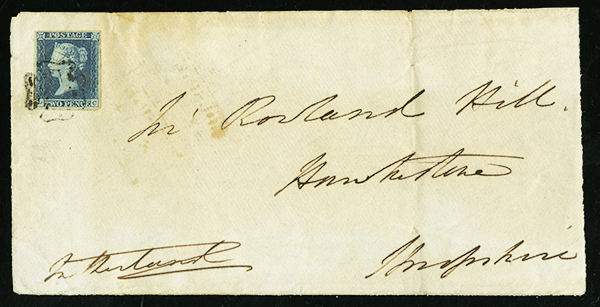 POSTAGE
TWO PENCE
Sir Rowland Hill.
Hawkstone
Shropshire